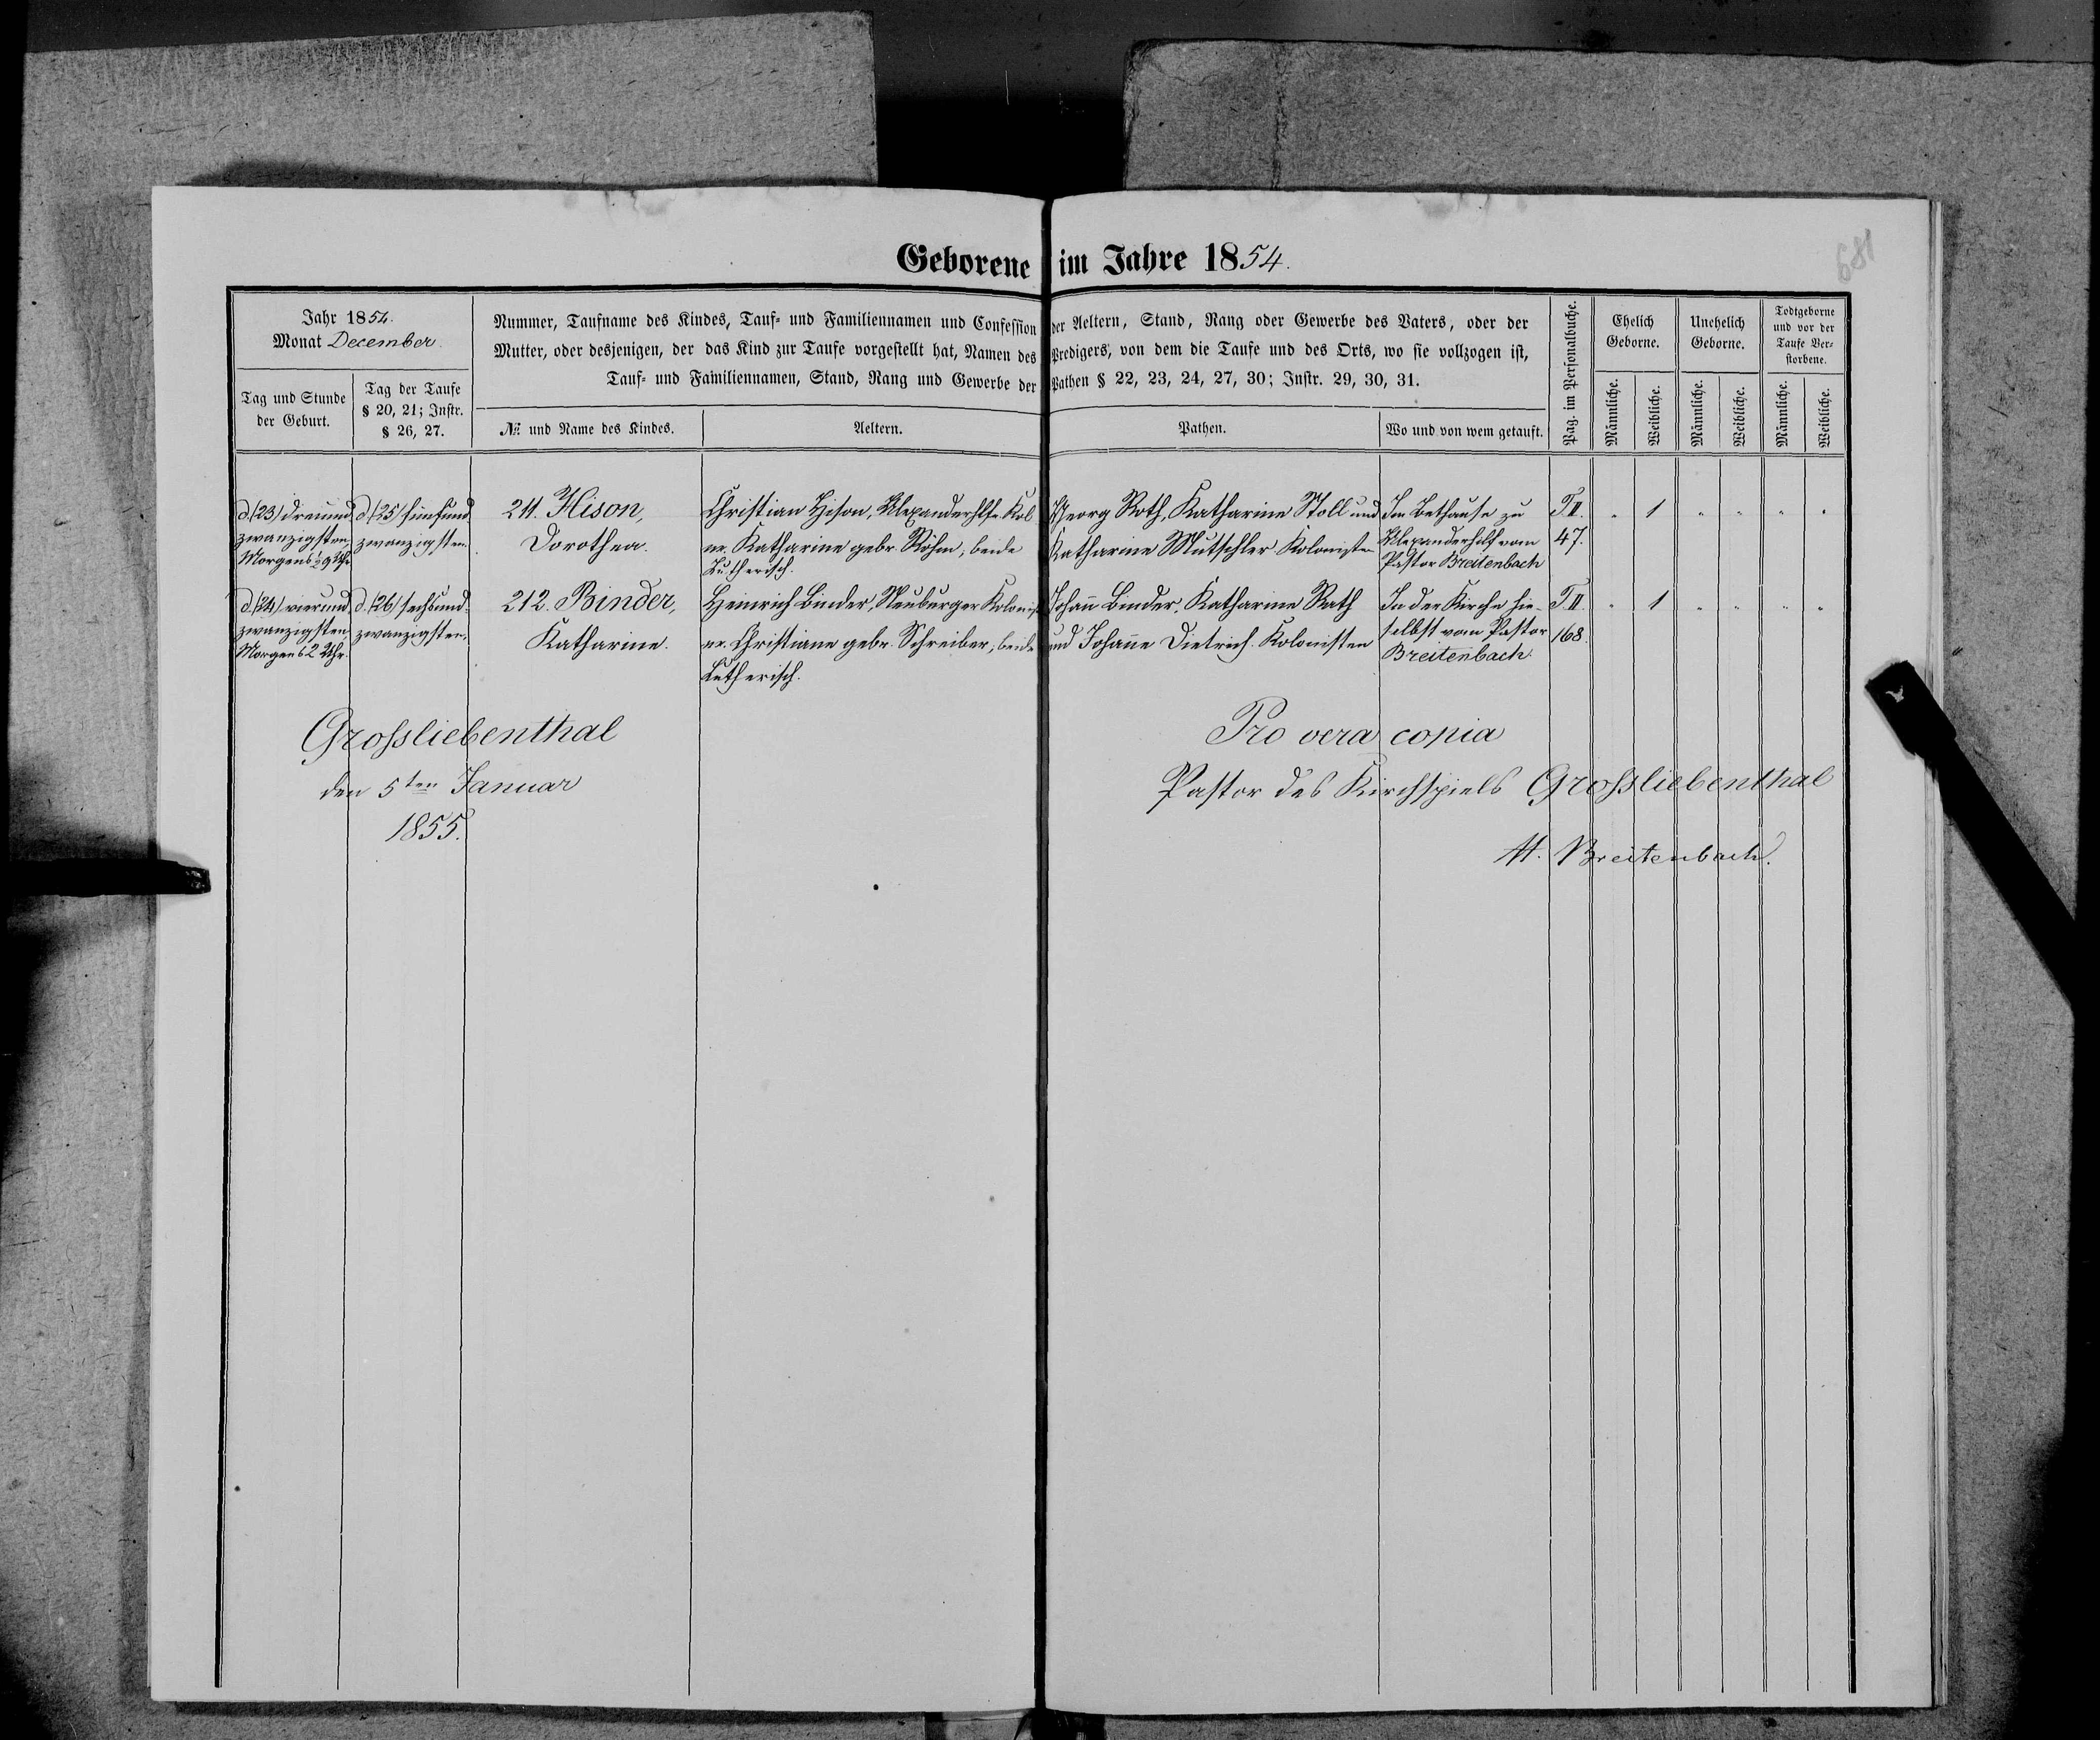 Geborene im Jahre 1854.
681
Jahr 1854.
Monat December.
Tag und Stunde
der Geburt.
Tag der Taufe
§ 20, 21; Instr.
§ 26, 27.
Nummer, Taufname des Kindes, Tauf- und Familiennamen und Confession der Aeltern, Stand, Rang oder Gewerbe des Vaters, oder der
Mutter, oder desjenigen, der das Kind zur Taufe vorgestellt hat, Namen des Predigers, von dem die Taufe und des Orts, wo sie vollzogen ist,
Tauf- und Familiennamen, Stand, Rang und Gewerbe der Pathen § 22, 23, 24, 27, 30; Instr. 29, 30, 31.
№ und Name des Kindes.
Aeltern.
Pathen.
Wo und von wem getauft.
Pag. im Personalbuche.
Ehelich
Geborne.
Unehelich
Geborne.
Todtgeborne
und vor der
Taufe Ver-
storbene.
Männliche.
Weibliche.
Männliche.
Weibliche.
Männliche.
Weibliche.
d. (23) dreiund
zwanzigsten,
Morgens ½ 9 Uhr
d. (25) fünfund
zwanzigsten.
211. Hison,
Dorothea.
Christian Hison, Alexanderhlfr. Kol
ux. Katharine gebr. Röhm, beide
Lutherisch.
Georg Roth, Katharine Stoll und
Katharine Mutschler Kolonisten
Im Bethause zu
Alexanderhilf vom
Pastor Breitenbach
T. II.
47.
1
d. (24) vierund
zwanzigsten,
Morgens 2 Uhr.
d. (26) sechsund-
zwanzigsten.
212. Binder,
Katharine.
Heinrich Binder, Neuburger Kolonist
ux. Christiane gebr. Schreiber, beide
Lutherisch.
Johann Binder, Katharine Rath
und Johanne Dietrich. Kolonisten
In der Kirche hie-
selbst vom Pastor
Breitenbach.
T. II.
168.
1
Grossliebenthal
den 5ten Januar
1855.
Pro vera copia
Pastor des Kirchspiels Grossliebenthal
Breitenbach.